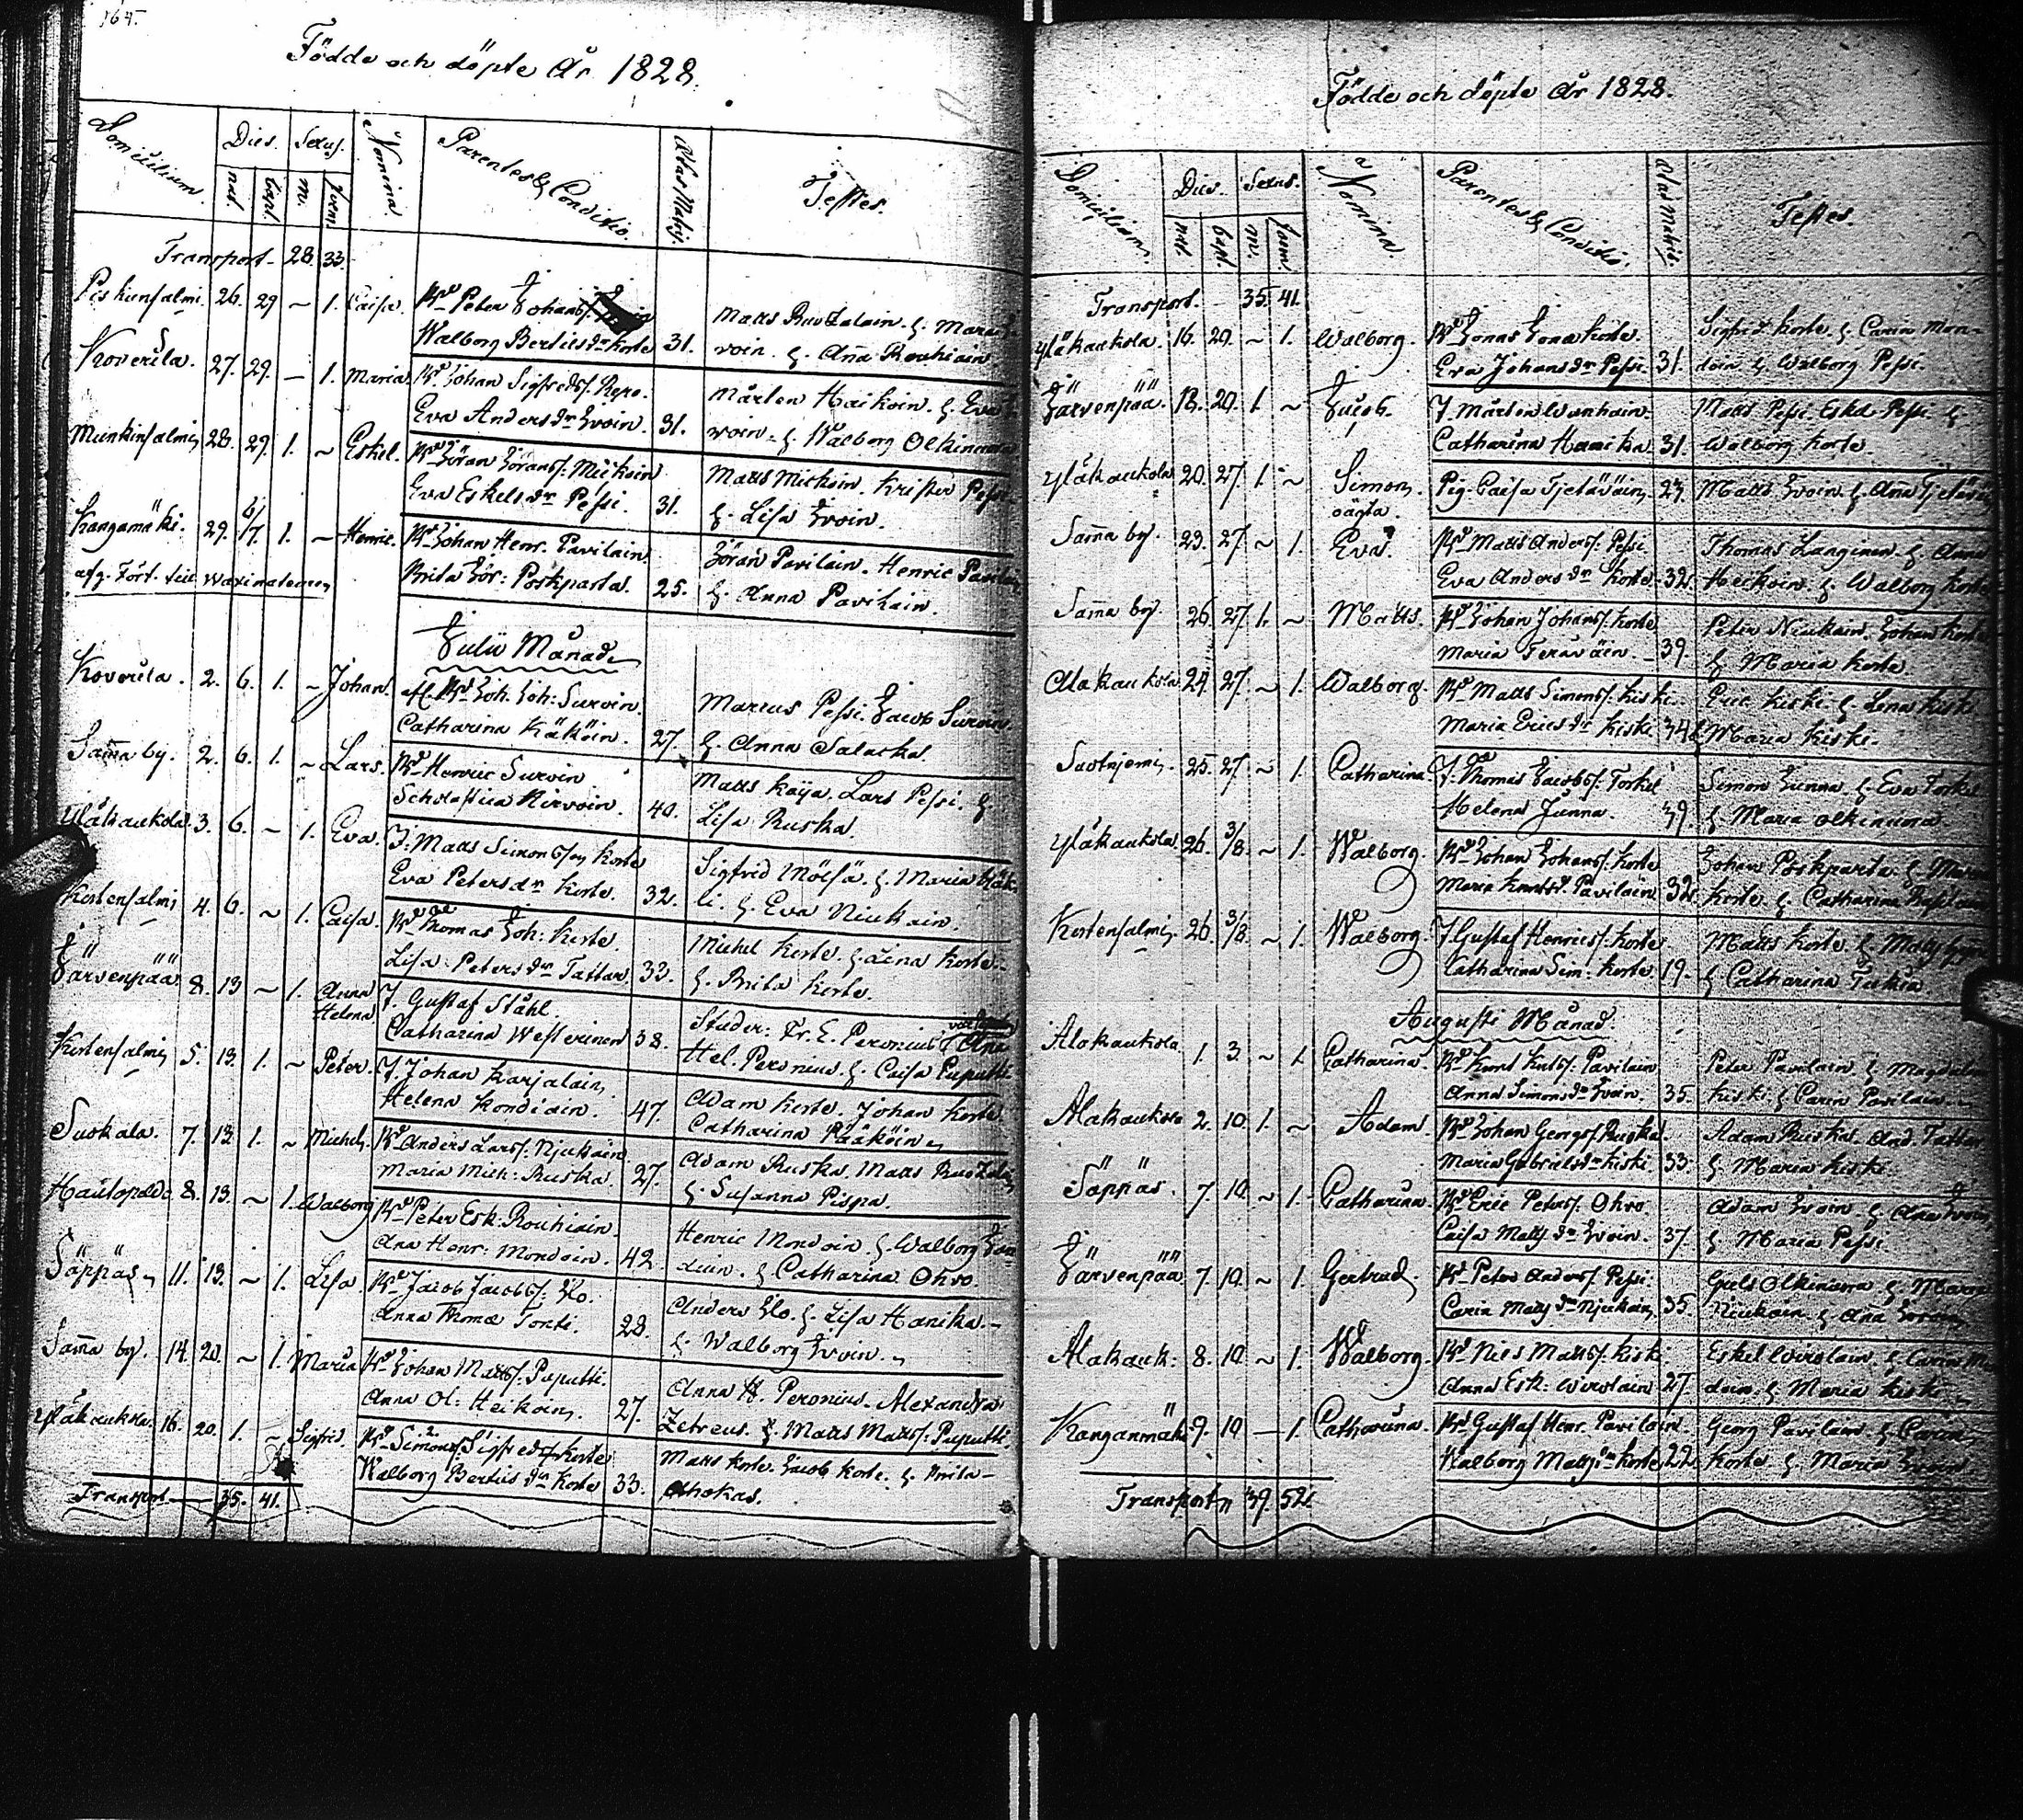 164.
Födde och döpte År 1828.
Domicilium. Dies. Sexus. Nomina. Parentes & Conditio. Ætas Matris. Testes.
nat. bapt. m. foem.
Transport - 28. 33.
Piskiensalmi. 26. 29 ~ 1. Caisa. Bd Peter Johans.
Walborg Bertils dr Korte 31. Matts Ruotzalain. & Maria
voin. & Aña Rouhiain
Koverila. 27. 29. — 1. Maria. Bd Johan Sigfreds. Repo.
Eva Anders dr Ivoin. 31. Mårten Haikoin. & Eva
woin. & Walborg Olkinuora
Munkinsalmi 28. 29. 1. ~ Eskel. Bd Jöran Jörans. Mickoin
Eva Eskels dr Pessi. 31. Matts Mickoin. Krister Pessi
& Lisa Ivoin.
Kangamäki. 29. 6/7 1. ~ Henric. Bd Johan Henr. Pavilain.
Brita Jör: Poskparta. 25. Jöran Pavilain. Henric Pavilain
& Anna Pavilain.
afg. Fört. till waxinateuren
Julii Månad
Koverila. 2. 6. 1. ~ Johan. Bd Joh. Joh: Survoin.
Catharina Käköin. 27. Marcus Pessi. Jacob Survoin.
& Anna Salacka.
Saña by. 2. 6. 1. ~ Lars. Bd Henric Survoin
Scholastica Hirvoin. 40. Matts Kaija. Lars Pessi. &
Lisa Ruska.
Yläkaukola. 3. 6. ~ 1. Eva. J. Matts Simonsson Korte
Eva Peters dr Korte. 32. Sigfrid Mölsä. & Maria
li. & Eva Niukain.
Kortensalmi 4. 6. ~ 1. Caisa. Bd Thomas Joh: Korte.
Lisa Peters dr Tattar. 33. Michel Korte. & Lena Korte.
& Brita Korte.
Järvenpää 8. 13 ~ 1. Anna
Helena J. Gustaf Ståhl.
Catharina Westerinen 38. Studer: Fr. E. Peronius
Hel. Peronius & Caisa Puputti
Kortensalmi 5. 13. 1. ~ Peter. J. Johan Karjalain.
Helena Kondiain. 47. Adam Korte. Johan Korte.
Catharina Pääköin
Suokala. 7. 13. 1. ~ Michel. Bd Anders Lars. Njukain.
Maria Mich: Ruska. 27. Adam Ruska. Matts Ruotzalain
& Susanna Pispa.
Hautopeldo 8. 13. ~ 1. Walborg Bd Peter Esk: Rouhiain.
Ana Henr: Mondoin. 42. Henric Mondoin. & Walborg
& Catharina Ohvo.
Säppäs 11. 13. ~ 1. Lisa. Bd Jacob Jacobs: Ilo.
Anna Thomæ Tonti. 28. Anders Ilo. & Lisa Hanika. -
& Walborg Ivoin.
Saña by. 14. 20. ~ 1. Maria Bd Johan Matts. Puputti.
Anna Ol: Heikoin. 27. Anna H. Peronius. Alexandra
Zetreus. & Matts Matts: Puputti.
Yläkaukola. 16. 20. 1. ~ Sigfrid. Bd Simon Sigfreds. Korte
Walborg Bertils dr Korte 33. Matts Korte. Jacob Korte. & Brita
Ahokas.
Transport — 35. 41.
Födde och döpte År 1828.
Domicilium. Dies. Sexus. Nomina. Parentes & Conditio. Ætas Matris. Testes.
nat. bapt. m. foem.
Transport. - 35. 41.
Yläkaukola. 16. 20. ~ 1. Walborg. Bd Jonas Jonæ Korte.
Eva Johans dr Pessi. 31. Sigfrid Korte & Carin Mon-
doin & Walborg Pessi.
Järvenpää. 18. 20. 1. ~ Jacob. J. Mårten Wanhain.
Catharina Hanika 31. Matts Pessi. Eskel Pessi &
Walborg Korte.
Yläkaukola 20. 27. 1. ~ Simon.
oägta. Pig. Caisa Tjetäväin. Matts Ivoin. & Aña
Saña by. 23. 27. ~ 1. Eva. Bd Matts Anders. Pessi
Eva Anders dr Korte 32. Thomas Langinen & Anna
Heikoin & Walborg Korte
Saña by. 26. 27. 1. ~ Matts. Bd Johan Johans. Korte
Maria Teräväin. 39. Peter Niukain. Johan Korte
& Maria Korte.
Alakaukola 24. 27. ~ 1. Walborg. Bd Matts Simons. Kiski.
Maria Erics dr Kiski 34. Eric Kiski. & Lena Kiski
& Maria Kiski.
Saotniemi. 25. 27. ~ 1. Catharina. J. Thomas Jacobs. Torkel
Helena Junna. 39. Simon Junna. & Eva Torkel
& Maria Olkinuora
Yläkaukola 26. 3/8. ~ 1. Walborg. Bd Johan Johans. Korte
Maria Knuts dr Pavilain 32. Johan Poskparta &
Korte. & Catharina
Kortensalmi 26. 3/8. ~ 1. Walborg. J. Gustaf Henrics. Korte
Catharina Sim: Korte 19. Matts Korte. &
& Catharina Tukia
Augusti Månad.
Alakaukola 1. 3. ~ 1. Catharina. Bd Knut Knuts. Pavilain
Anna Simons dr Ivoin. 35. Peter Pavilain & Magdalena
Kiski. & Carin Pavilain.
Alakaukola 2. 10. 1. ~ Adam. Bd Johan Georgs. Ruska.
Maria Gabriels dr Kiski 33. Adam Ruska. And. Tattar
& Maria Kiski
Säppäs. 7. 10. ~ 1. Catharina Bd Eric Peters. Ohvo
Caisa Matts dr Ivoin. 37. Adam Ivoin & Ana Ivoin
& Maria Pessi.
Järvenpää 7. 10. ~ 1. Gertrud. Bd Peter Anders. Pessi.
Carin Matts dr Njukain. 35. Olkinuora & Maria
Niukain & Aña Ivoin
Alakauk: 8. 10. ~ 1. Walborg. Bd Nils Matts. Kiski.
Anna Esk: Wirolain 27. Eskel Wirolain & Carin
doin & Maria Kiski
Kanganmäki 9. 10 — 1. Catharina Bd Gustaf Henr. Pavilain.
Walborg Matts dr Korte 22. Georg Pavilain & Carin
Korte & Maria Ivoin
Transport 39. 52.